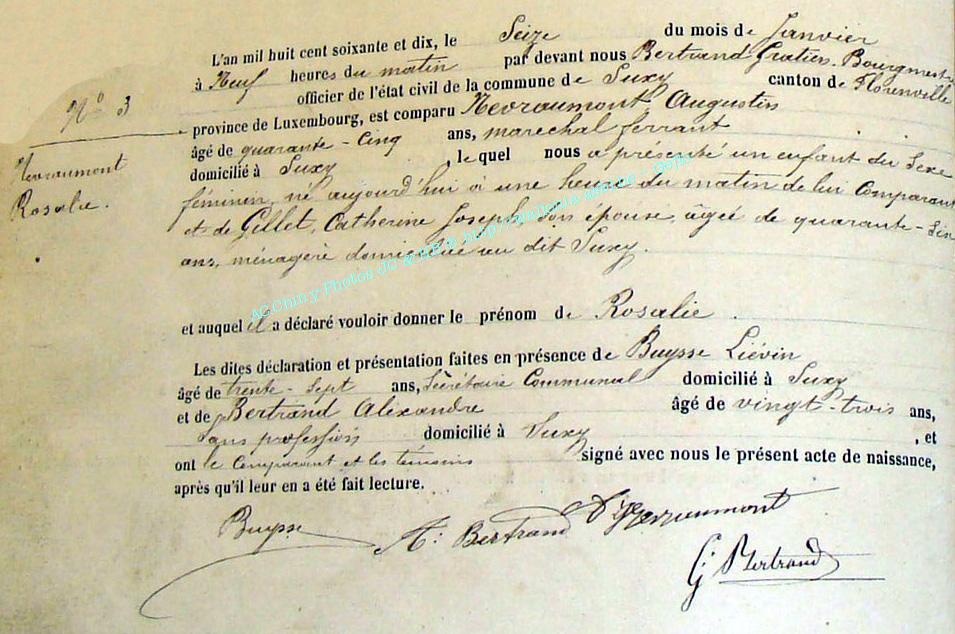 L'an mil huit cent soixante et dix, le Seize du mois de Janvier
à Neuf heures du matin par devant nous Bertrand Gratien, Bourgmestre
officier de l'état civil de la commune de Suxy canton de Florenville
province de Luxembourg, est comparu Nevraumont Augustin
âgé de quarante-Cinq ans, marechal ferrant
domicilié à Suxy, le quel nous a présenté un enfant du Sexe
féminin, né aujourd'hui à une heure du matin de lui Comparant
et de Gillet, Catherine Joseph, son épouse, âgée de quarante-
ans, ménagère domiciliée au dit Suxy.
N° 3
Nevraumont
Rosalie.
AC Chiny Photos JC
et auquel il a déclaré vouloir donner le prénom de Rosalie.
Les dites déclaration et présentation faites en présence de Buysse Liévin
âgé de trente-Sept ans, Secrétaire Communal domicilié à Suxy
et de Bertrand Alexandre âgé de vingt-trois ans,
Sans profession domicilié à Suxy, et
ont le Comparant et les témoins signé avec nous le présent acte de naissance,
après qu'il leur en a été fait lecture.
Buysse A: Bertrand Nevraumont
G Bertrand